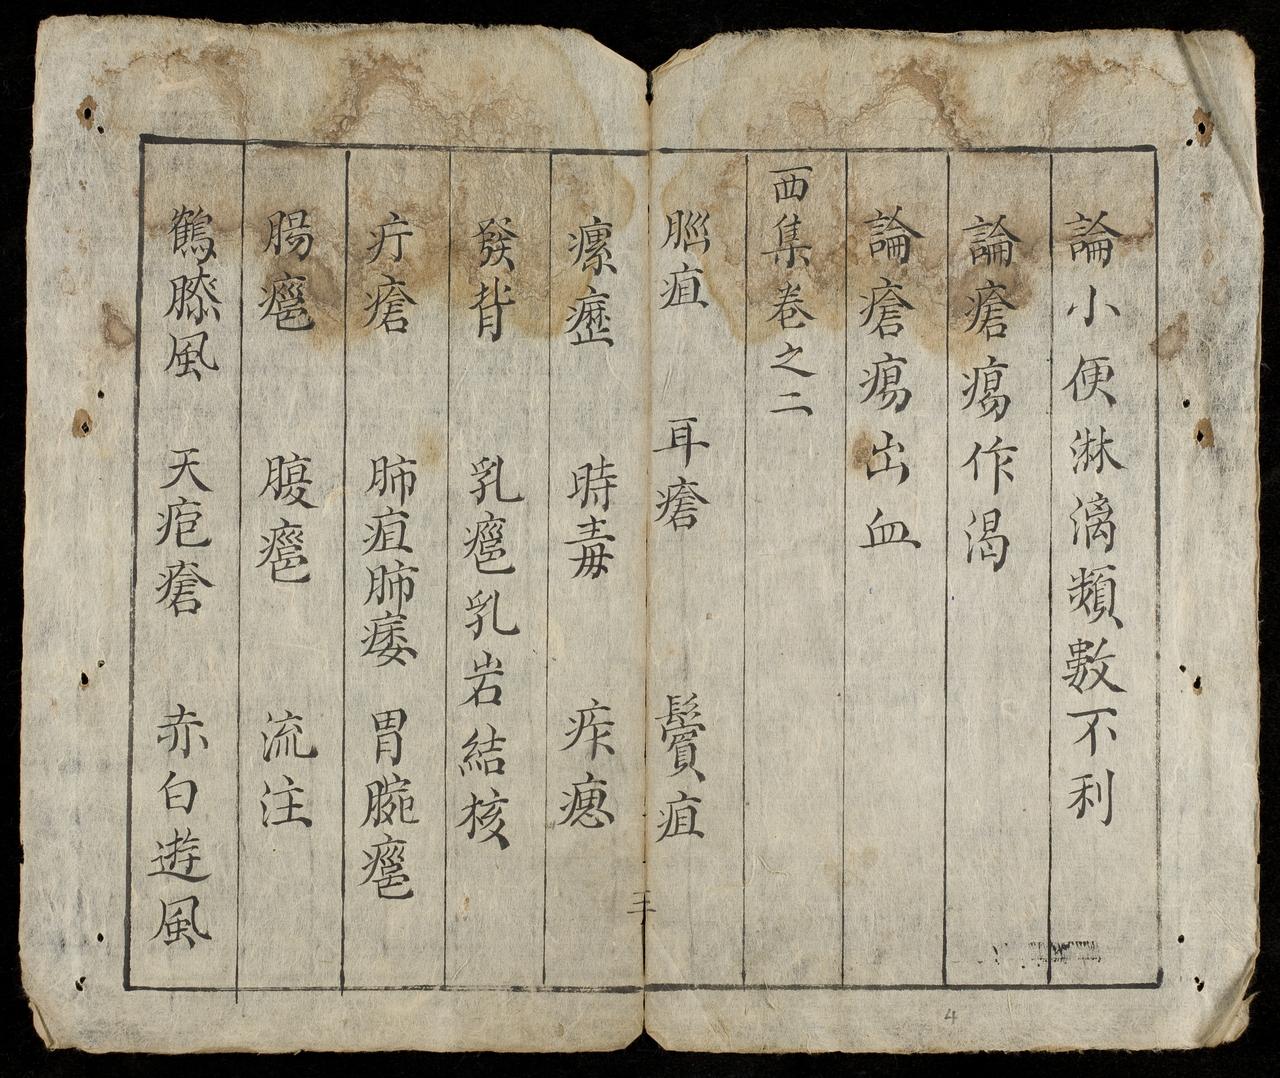 論小便淋漓頻數不利
論瘡瘍作渴
論瘡瘍出血
西集卷之二
腦疽 耳瘡 鬢疽
瘰癧 時毒 痄腮
發背 乳癰乳岩結核
疔瘡 肺疽肺痿 胃脘癰
腸癰 腹癰 流注
鶴膝風 天疱瘡 赤白遊風
4